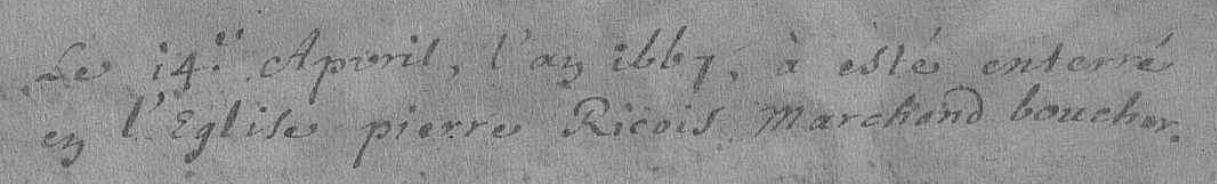 Le 14.e Apvril, l'an 1667, à esté enterré
en l'Eglise pierre Ricois Marchand boucher.